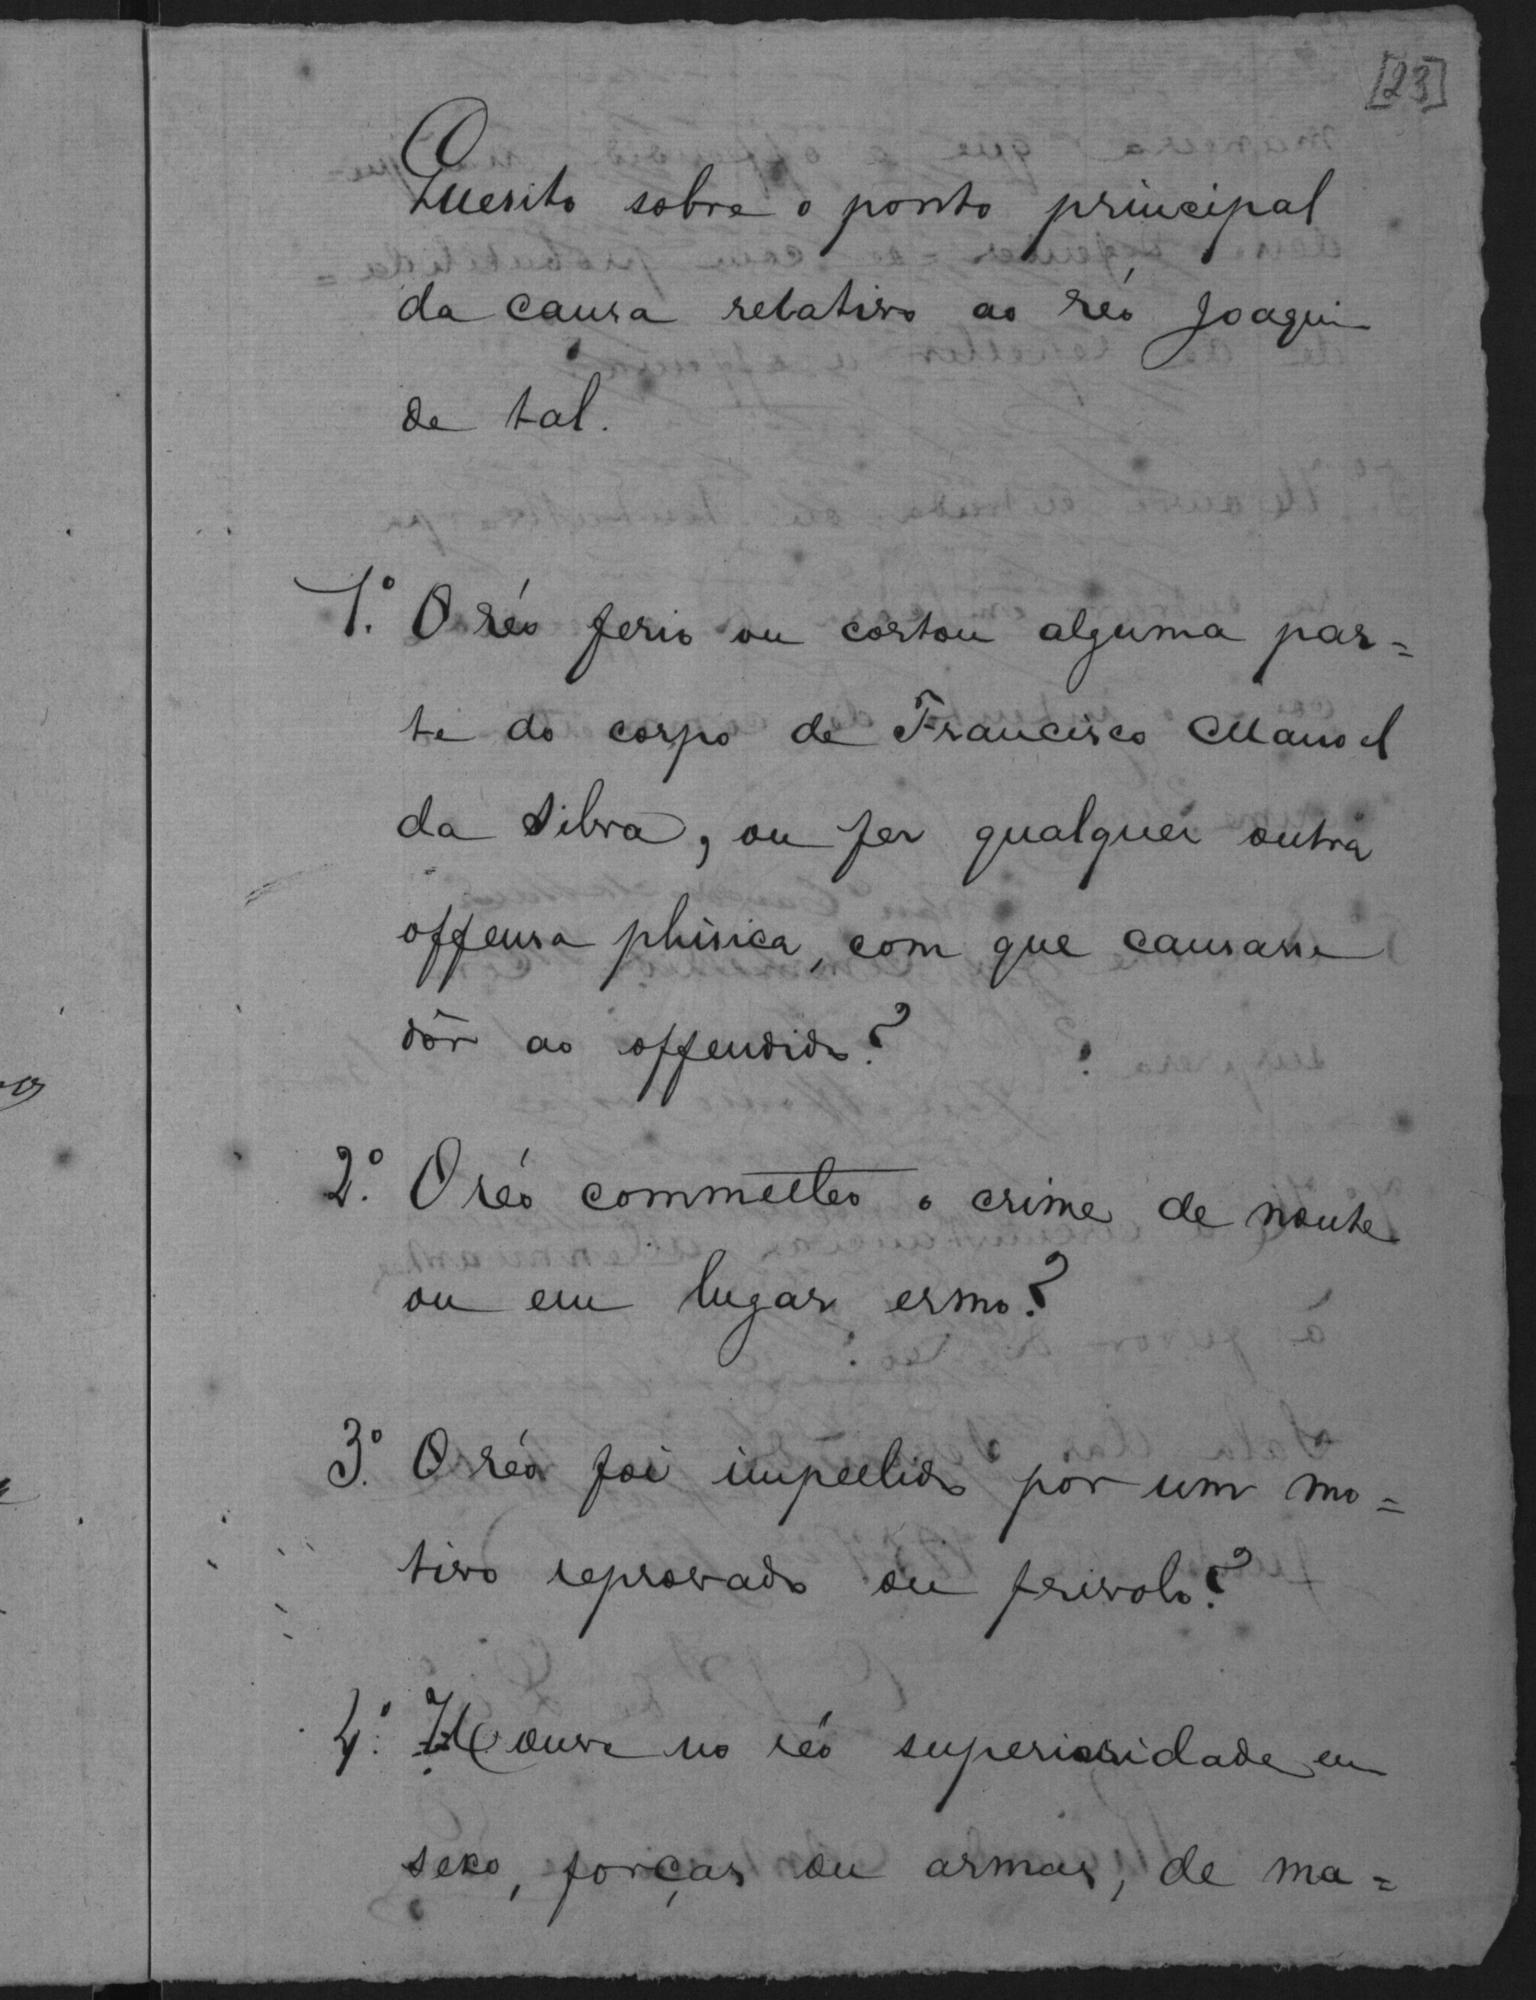 [23]
Quesito sobre o ponto principal
da causa relativo ao réo Joaquim
de tal.
1.º O réo ferio ou cortou alguma par=
te do corpo de Francisco Manoel
da Silva, ou fez qualquer outra
offensa phisica, com que causasse
dôr ao offendido?
2.º O réo commetteo o crime de noute
ou em lugar ermo?
3.º O réo foi impellido por um mo=
tivo reprovado ou frivolo?
4.º Houve no réo superioridade em
sexo, forças ou armas, de ma=